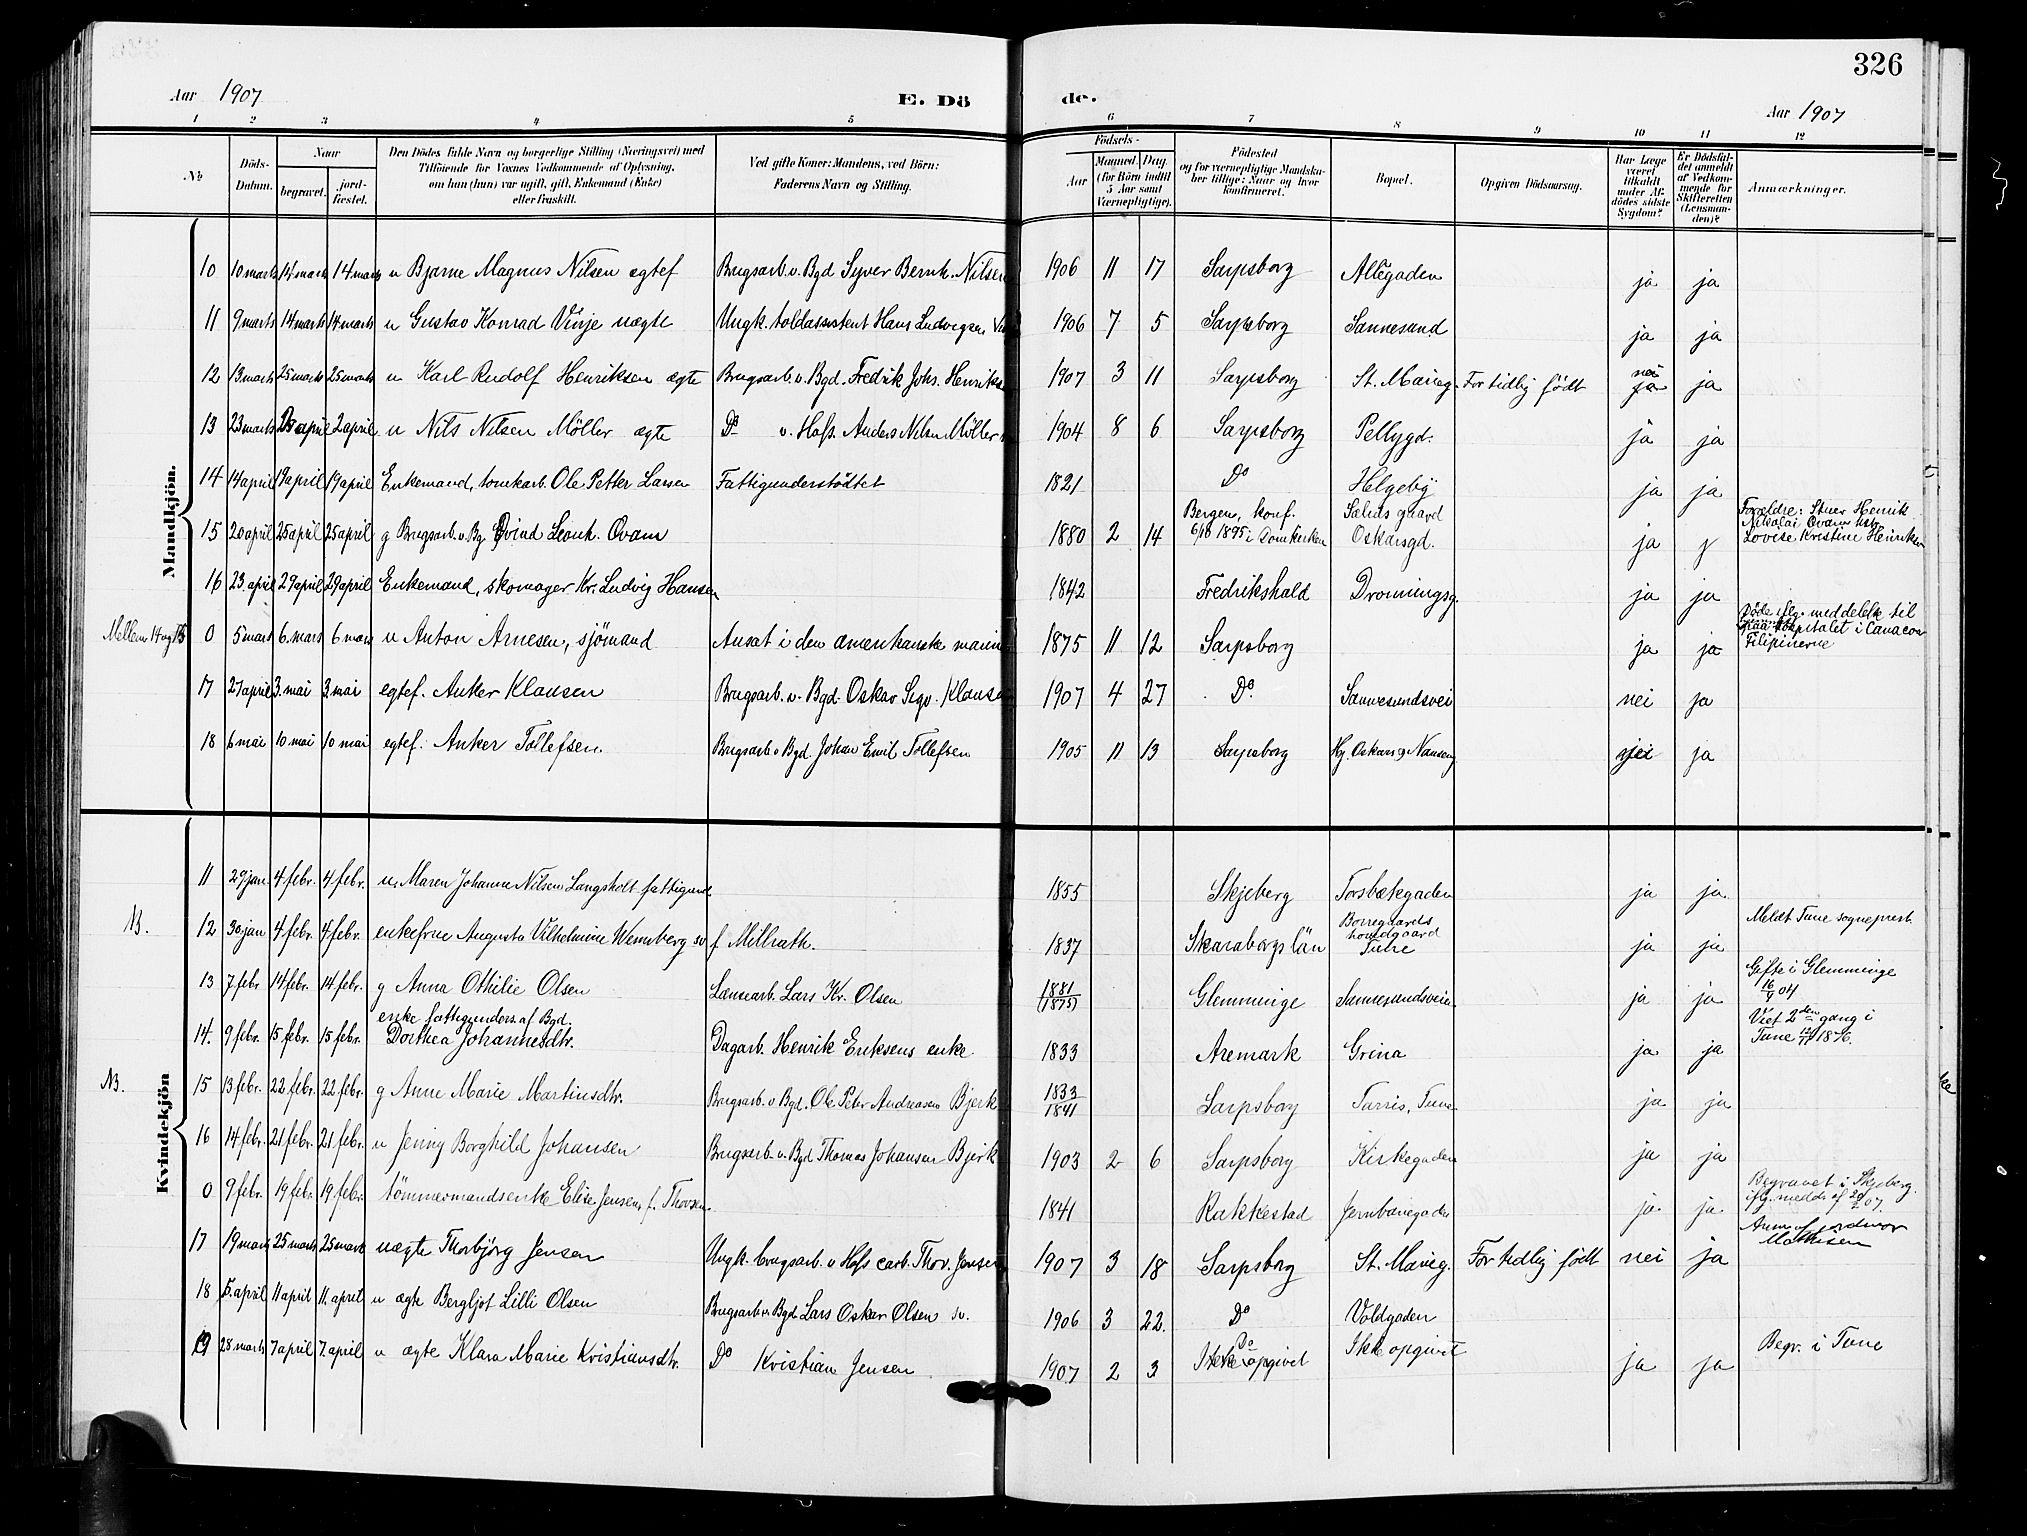 326
Aar 1907 E. Dö de. Aar 1907
1 2 3 4 5 6 7 8 9 10 11 12
№ Döds-Datum. Naar begravet. jord-fæstet. Den Dödes fulde Navn og borgerlige Stilling (Næringsvei) med Tilföiende for Voxnes Vedkommende af Oplysning, om han (hun) var ugift, gift, Enkemand (Enke) eller fraskilt. Ved gifte Koner: Mandens, ved Börn: Faderens Navn og Stilling. Födsels- Aar Maaned. Dag. (for Börn indtil 5 Aar samt Værnepligtige). Födested og for værnepligtige Mandskaber tillige: Naar og hvor konfirmeret. Bopæl. Opgiven Dödsaarsag. Har Læge været tilkaldt under Afdödes sidste Sygdom? Er Dödsfaldet anmeldt af Vedkommende for Skifteretten (Lensmanden)? Anmærkninger.
Mandkjön.
10 10 marts 14 marts 14 marts u Bjarne Magnus Nilsen egtef Brugsarb. v. Bgd Syver Bernh. Nilsen 1906 11 17 Sarpsborg Allegaden ja ja
11 9 marts 14 marts 14 marts u Gustav Konrad Vinje uegte Ungk. toldassistent Hans Ludvigsen 1906 7 5 Sarpsborg Sannesund ja ja
12 13 marts 25 marts 25 marts u Karl Rudolf Henriksen ægte Brugsarb. v. Bgd. Fredrik Johs. Henriks 1907 3 11 Sarpsborg St. Marieg. For tidlig födt nei ja ja
13 23 marts 2 april 2 april u Nils Nilsen Möller ægte Do v. Hafs. Anders Nilsen Möller 1904 8 6 Sarpsborg Pellygd. ja ja
14 14 april 19 april 19 april Enkemand, tomtearb. Ole Petter Larsen Fattigunderstödtet 1821 Do Helgeby ja ja
15 20 april 25 april 25 april g Brugsarb. v. Bg Eivind Leonh. Ovam 1880 2 14 Bergen, konf. 6/10 1895 i Domkirken Saleds gaard Oskarsgd. ja Forældre: Stuer Henrik Nikolai Ovam Lovise Kristine Henriksen
16 23 april 29 april 29 april Enkemand, skomager Kr. Ludvig Hansen 1842 Fredrikshald Dronningsg. ja ja
Mellem 14 og 15 0 5 mars 6 mars 6 mars u Anton Arnesen, sjömand Ansat i den amerikanske marin 1875 11 12 Sarpsborg ja ja Döde ifg. meddelelse til paa hospitalet i Canacao Filipinerne
17 27 april 3. mai 3 mai egtef. Anker Klausen Brugsarb. v. Bgd. Oskar Sigv. Klausen 1907 4 27 Do. Sannesundsvei nei ja
18 6 mai 10 mai 10 mai egtef. Anker Tollefsen. Brugsarb v Bgd. Johan Emil Tollefsen 1905 11 13 Sarpsborg Hj. Oskars g Nanseng nei ja
Kvindekjön
11 29 jan. 4 febr. 4 febr. u. Maren Johanne Nilsen Langsholt fattigund 1855 Skjeberg Torsbækgaden ja ja
N. 12 30 jan 4 febr. 4 febr. enkefrue Augusta Vilhelmine Wennberg sv f. Millrath. 1837 Skaraborgs län Borregaards hovedgaard Tune ja ja Meldt Tune sogneprest.
13 7 febr 14 febr. 14 febr. g Anna Othilie Olsen Lænsearb. Lars Kr. Olsen 1881 (1875) Glemminge Sannesundsveien ja ja Gifte i Glemminge 16/9 04
14. 9 febr. 15 febr. 15 febr. enke fattigunders. af Bgd. Dorthea Johannesdtr. Dagarb. Henrik Eriksens enke 1833 Aremark Grina ja ja Viet 2den gang i Tune 12/11 1876.
N. 15 13 febr. 22 febr. 22 febr. g Anne Marie Martinsdtr. Brugsarb. v Bgd. Ole Peter Andreasen Bjerk 1833 1841 Sarpsborg Tarris, Tune ja ja
16 14 febr. 21 febr. 21 febr. u Jenny Borghild Johansen Brugsarb. v. Bgd Thomas Johansen Bjerk 1903 2 6 Sarpsborg Kirkegaden ja ja
0 9 febr. 19 febr. 19 febr. tömmermandsenke Elise Jensen, f. Thorsen 1841 Rakkestad Jernbanegaden ja ja. Begravet i Skjeberg. ifg. medd. af 20/2 07.
17 19 mars 25 marts 25 mars uægte Thorbjörg Jensen Ungk. brugsarb. v Hafs carb. Thor. Jensen 1907 3 18 Sarpsborg St. Marieg. For tidlig födt nei ja Anm. af jordmor Mathisen
18 5. april 11 april 11. april u ægte Bergljot Lilli Olsen Brugsarb. v. Bgd. Lars Oskar Olsen sv. 1906 3 22. Do Voldgaden
19 28 marts 7 april 7. april u ægte Klara Marie Kristiansdtr. Do Kristian Jensen 1907 2 3 Do Ikke opgivet Ikke opgivet ja ja Begr. i Tune